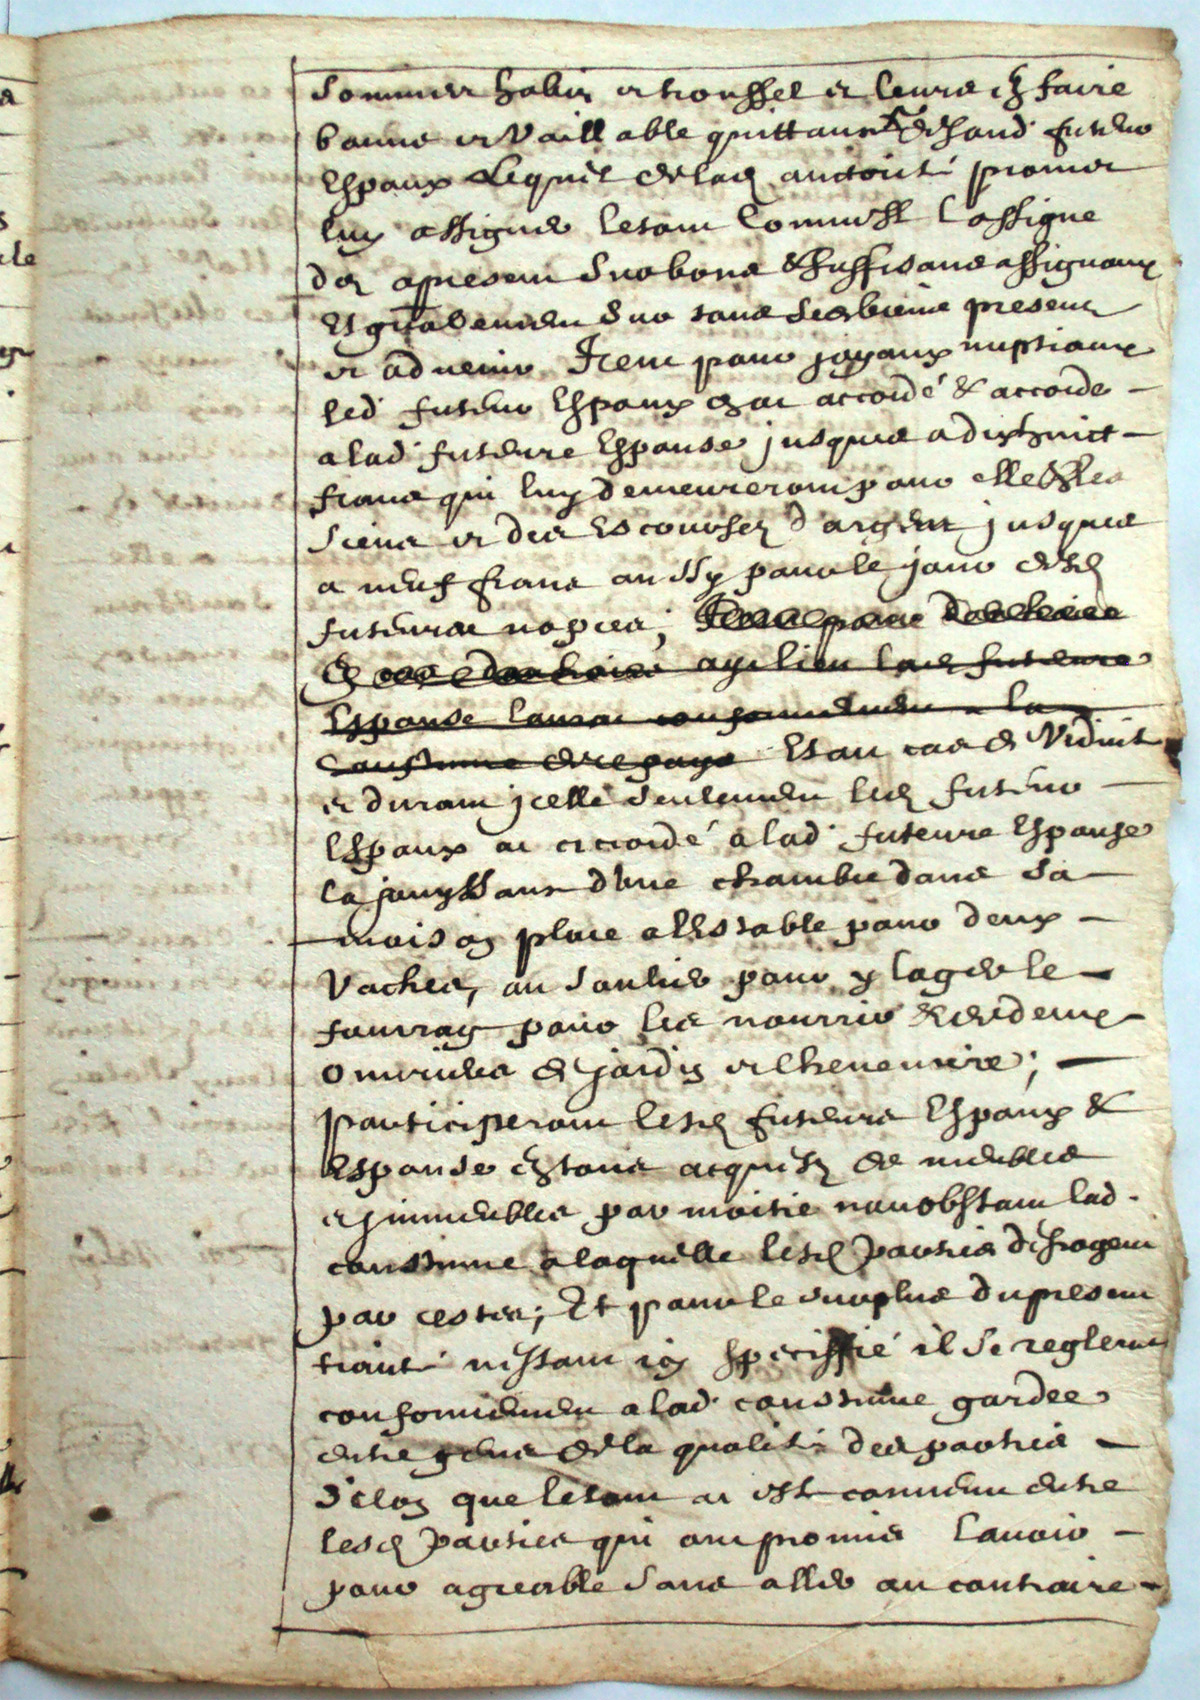 sommes habis et trousselz et leurs en faire
bonne et vaillable quittance & led futeur
Espoux Lequel de lad auctorité promet
luy assigner le tout Comme Il l'assigne
dez a present sur bons & suffisans assignaux
Et gnallement sur tous ses biens presens
et advenir Item pour joyaux nuptiaux
led futeur Espoux a accordé & accorde
a lad future Espouse jusques a dixhuict
frans qui luy demeureront pour elle & les
siens et des Escourses d'argent jusques
a neuf frans aussy pour le jour desd
futeures nopces, Item pour douhaire
Espouse l'aura conformement a la
Coustume de ce pays Et au cas de Viduité
et durant jcelle seulement led futeur
Espoux a accordé a lad future Espouse
la jouyssance d'une chambre dans sa
maison place a l'Estable pour deux
Vaches, au soulier pour y loger le
fourrag pour les nourrir & de deux
ouvriees de jardin et Cheneviere ;
participeront lesd futeurs Espoux &
Espouse en tous acquestz de meubles
et jmmeubles par moitié nonobstant lad
coustume a laquelle lesd parties desrogent
par cestes ; Et pour le surplus du present
traité n'estant icy speciffié il se reglera
conformement a lad coustume gardee
entre gens de la qualité des parties
selon que le tout a esté convenu entre
lesd parties qui ont promis l'avoir
pour agreable sans aller au contraire